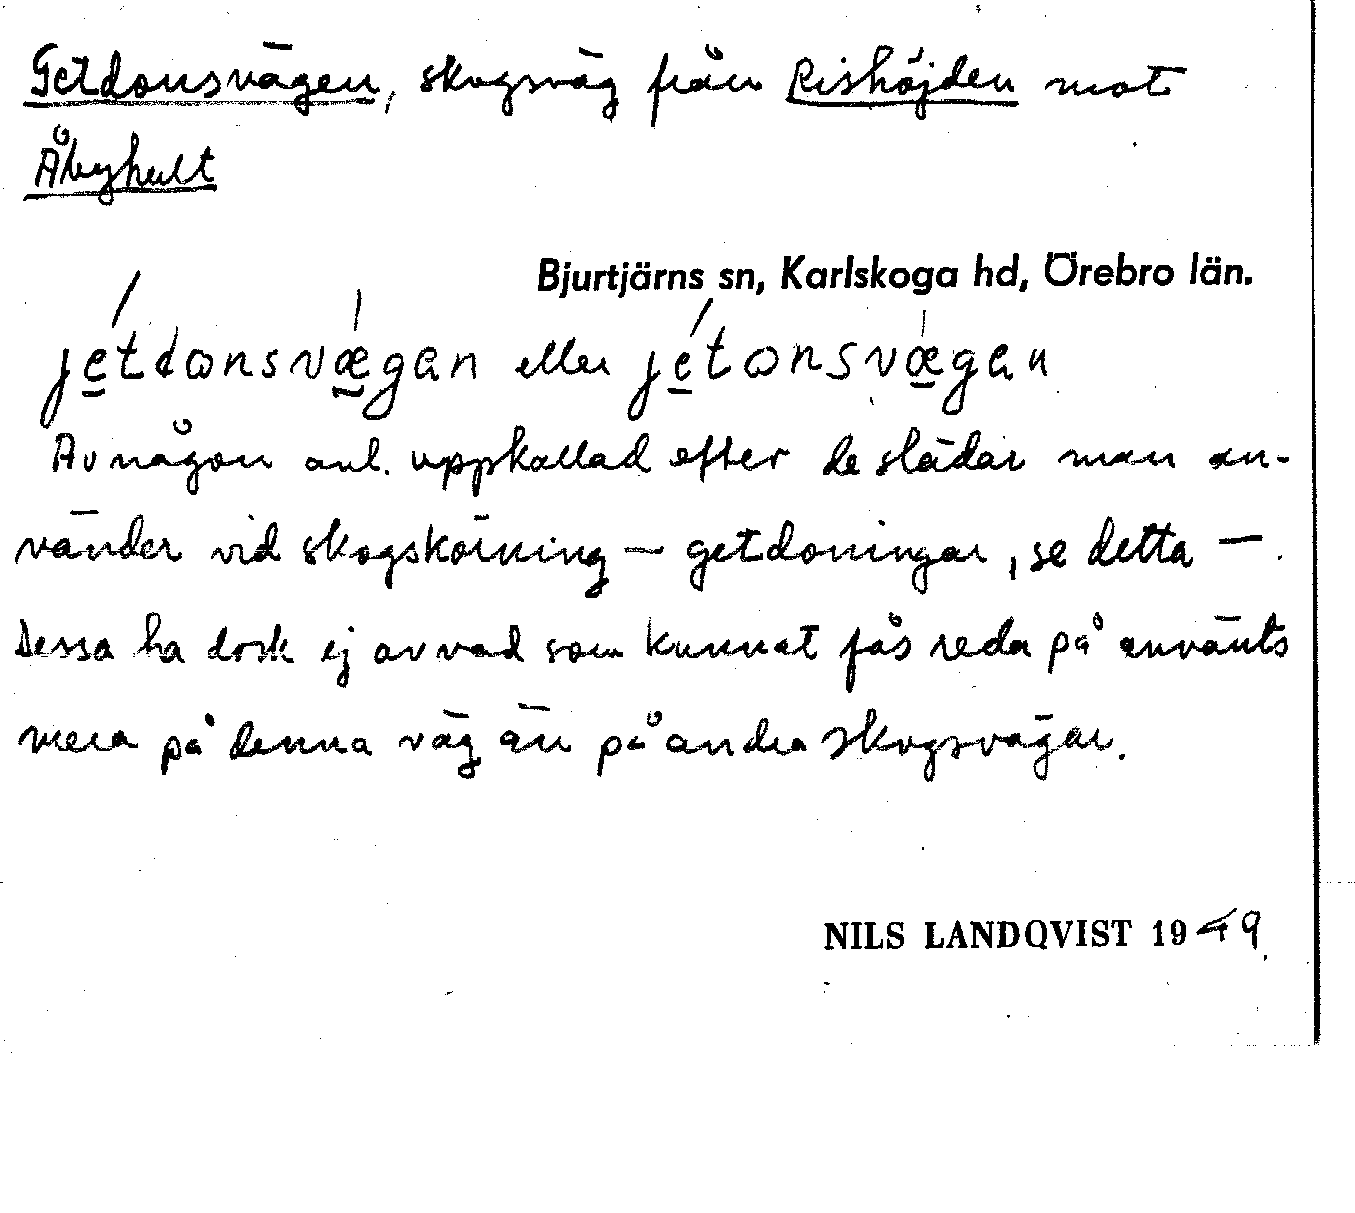 Getdonsvägen, skogsväg från Rishöjden mot
Åbyhult
Bjurtjärns sn, Karlskoga hd, Örebro län.
jétdωnsvægan eller jétωnsvægan
Av någon anl. uppkallad efter de slädar man an-
vänder vid skogskörning — getdoningar, se detta —.
Dessa ha dock ej av vad som kunnat fås reda på använts
mera på denna väg än på andra skogsvägar.
NILS LANDQVIST 1949